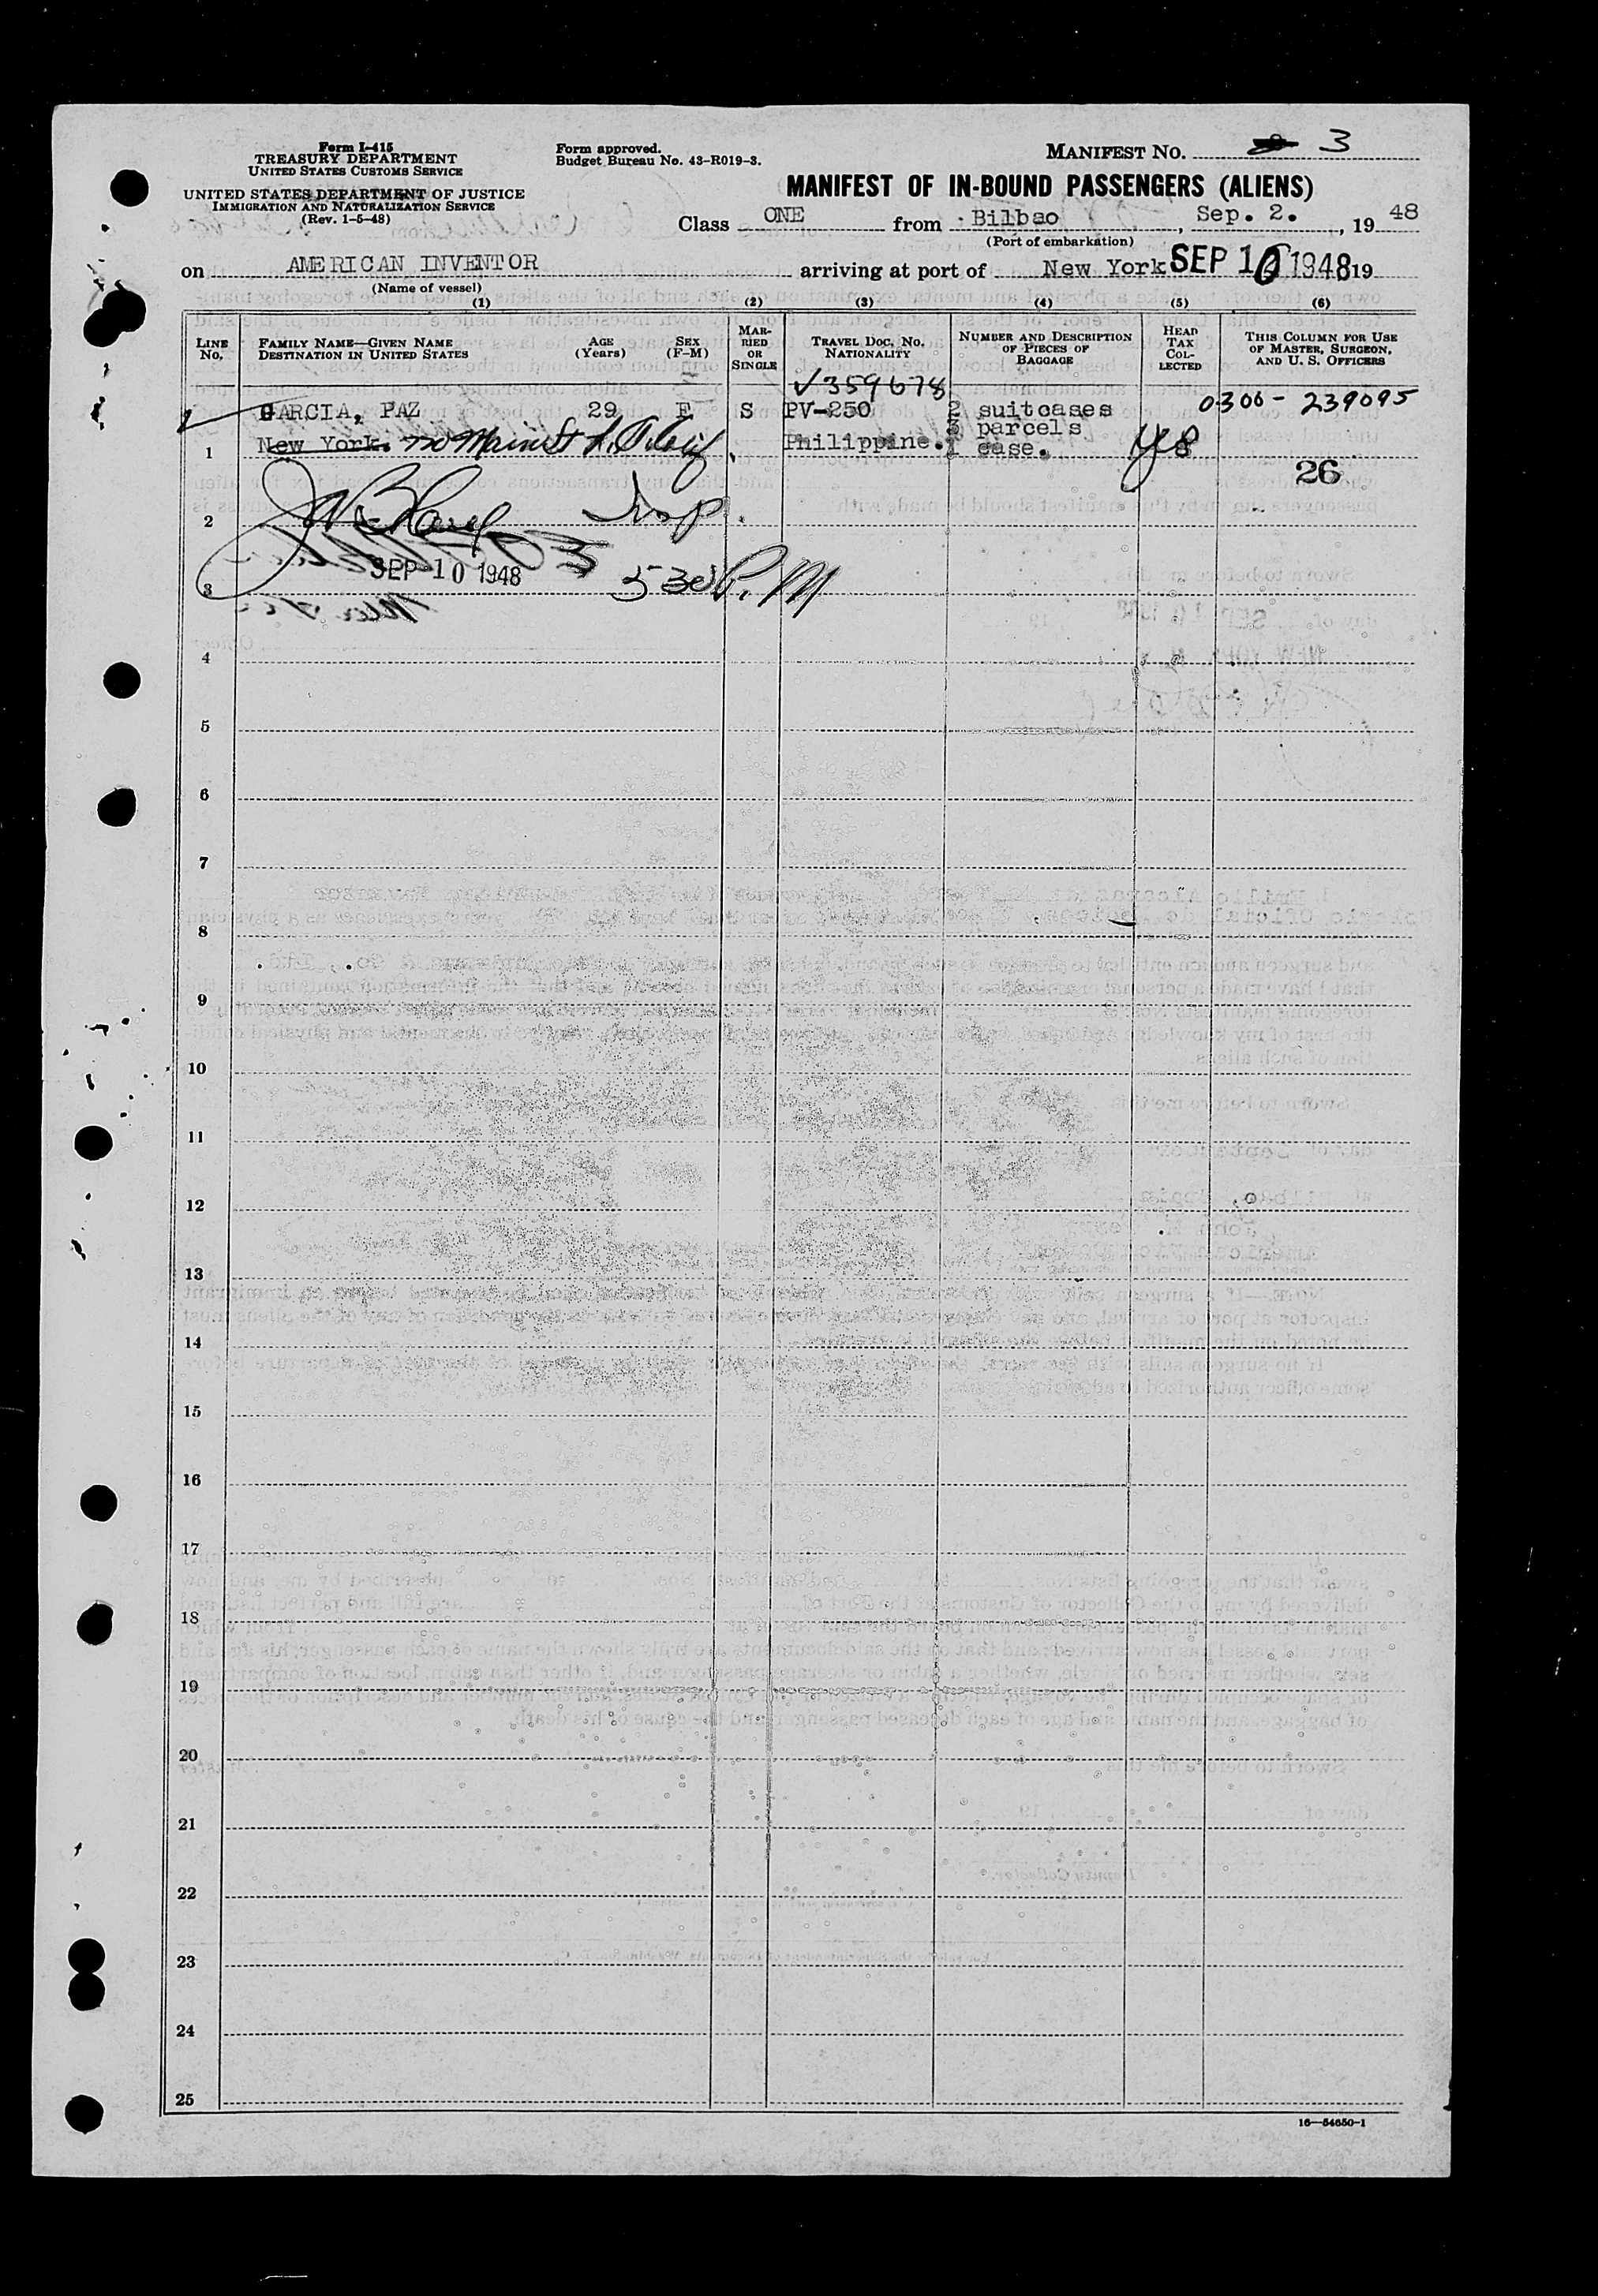 Form I-415
TREASURY DEPARTMENT
UNITED STATES CUSTOMS SERVICE
UNITED STATES DEPARTMENT OF JUSTICE
IMMIGRATION AND NATURALIZATION SERVICE
(Rev. 1-5-48)
Form approved.
Budget Bureau No. 43-R019-3.
MANIFEST NO. 3
MANIFEST OF IN-BOUND PASSENGERS (ALIENS)
Class ONE from Bilbao, Sep. 2., 19 48
(Port of embarkation)
on AMERICAN INVENTOR arriving at port of New York SEP 10 1948 19
(Name of vessel)
(1) (2) (3) (4) (5) (6)
LINE No.
FAMILY NAME—GIVEN NAME
DESTINATION IN UNITED STATES
AGE (Years)
SEX (F-M)
MARRIED OR SINGLE
TRAVEL DOC. NO.
NATIONALITY
NUMBER AND DESCRIPTION OF PIECES OF BAGGAGE
HEAD TAX COLLECTED
THIS COLUMN FOR USE OF MASTER, SURGEON, AND U. S. OFFICERS
✓359678
GARCIA, PAZ 29 F S PV-250 2 suitcases 0300-239095
3 parcels
1 New York. Main St Philippine. 1 case. yes
26
2 Insp.
SEP 10 1948 530 P.M
3
4
5
6
7
8
9
10
11
12
13
14
15
16
17
18
19
20
21
22
23
24
25
16—54650-1